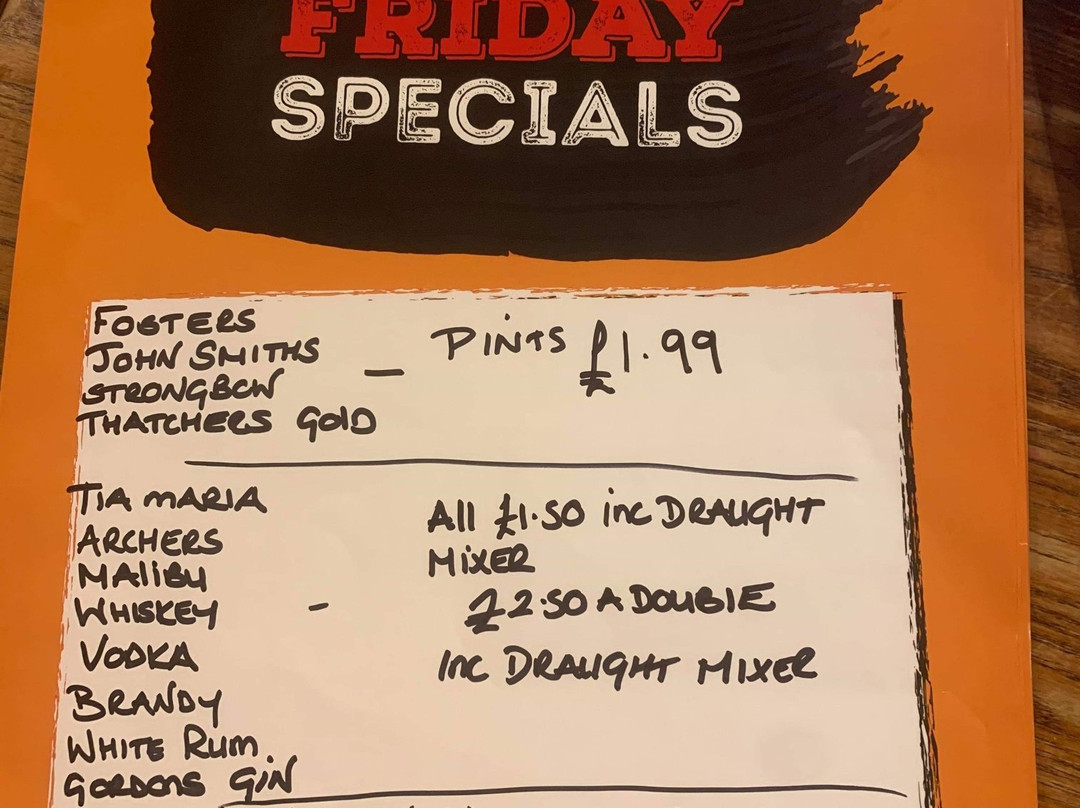 FRIDAY
SPECIALS
FOSTERS
JOHN SMITHS
STRONGBOW
THATCHERS GOLD
— PINTS £1.99
TIA MARIA
ARCHERS
MALIBU
WHISKEY
VODKA
BRANDY
WHITE RUM.
GORDONS GIN
- All £1.50 inc DRAUGHT
MIXER
£2.50 A DOUBLE
INC DRAUGHT MIXER